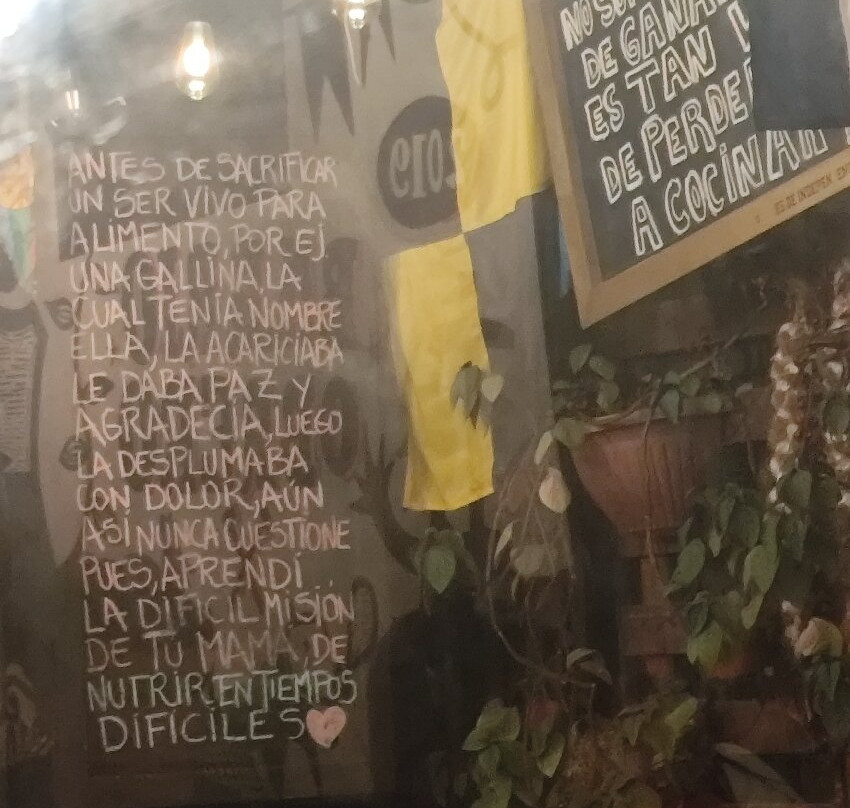 ANTES DE SACRIFICAR
UN SER VIVO PARA
ALIMENTO, POR EJ
UNA GALLINA, LA
CUAL TENÍA NOMBRE
ELLA, LA ACARICIABA
LE DABA PAZ Y
AGRADECÍA, LUEGO
LA DESPLUMABA
CON DOLOR, AÚN
ASÍ NUNCA CUESTIONE
PUES, APRENDÍ
LA DIFICIL MISIÓN
DE TU MAMÁ, DE
NUTRIR EN TIEMPOS
DIFICILES
NO
DE
ES TAN
DE PERDE
A COCINAR